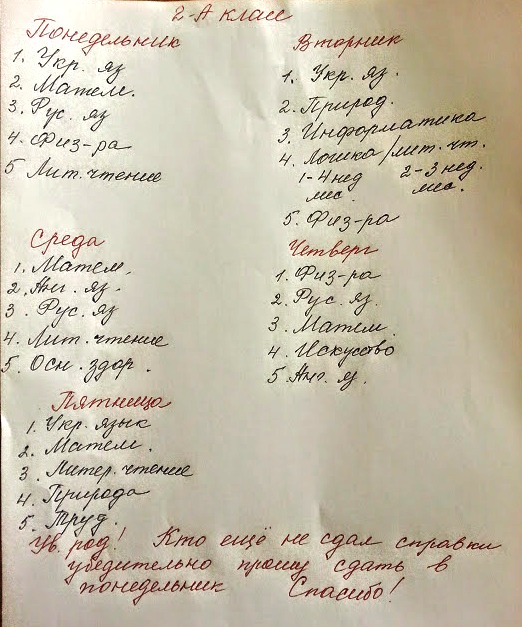 2-А класс
Понедельник
1. Укр. яз
2. Матем.
3. Рус. яз
4. Физ-ра
5 Лит. чтение
Вторник
1. Укр. яз.
2. Природ.
3. Информатика
4. Логика/лит. чт.
1-4 нед 2-3 нед.
мес. мес.
5. Физ-ра
Среда
1. Матем.
2. Анг. яз.
3. Рус. яз
4. Лит. чтение
5. Осн. здор.
Четверг
1. Физ-ра
2. Рус. яз.
3. Матем.
4. Искусство
5. Анг. я.
Пятница
1. Укр. язык
2. Матем.
3. Литер. чтение
4. Природа
5. Труд.
Ув. род! Кто ещё не сдал справки
убедительно прошу сдать в
понедельник Спасибо!